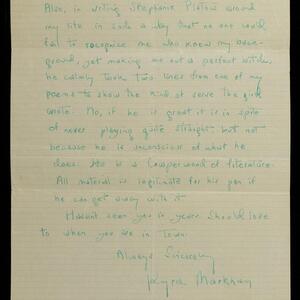 Also, in writing Stephanie Platow around
my life in such a way that no one could
fail to recognize me who knew my back-
ground, yet making me out a perfect bitch,
he calmly took two lines from one of my
poems to show the kind of verse the girl
wrote. No, if he is great it is in spite
of never playing quite straight but not
because he is unconscious of what he
does. He is a Cowperwood of literature.
All material is legitimate for his pen if
he can get away with it.
Haven't seen you in years. Should love
to when you are in town.
Always Sincerely
Kyra Markham